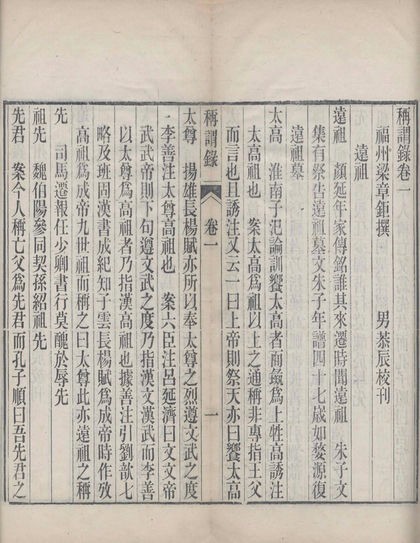 稱謂錄卷一
福州梁章鉅撰　男恭辰校刊
遠祖
遠祖　顏延年家傳銘誰其來遷時聞遠祖　朱子文
集有祭告遠祖墓文朱子年譜四十七歲如婺源復
遠祖墓
太高　淮南子氾論訓饗太高者而彘爲上牲高誘注
太高祖也　案太高爲祖以上之通稱非專指王父
而言也且誘注又云一曰上帝則祭天亦曰饗太高
稱謂錄　卷一　一
太尊　揚雄長楊賦亦所以奉太尊之烈遵文武之度
李善注太尊高祖也　案六臣注呂延濟曰文文帝
武武帝則下句遵文武之度乃指漢文漢武而李善
以太尊爲高祖者乃指漢高祖也據善注引劉歆七
略及班固漢書成紀知子雲長楊賦爲成帝時作攷
高祖爲成帝九世祖而稱之曰太尊此亦遠祖之稱
先　司馬遷報任少卿書行莫醜於辱先
祖先　魏伯陽參同契孫紹祖先
先君　案今人稱亡父爲先君而孔子順曰吾先君之